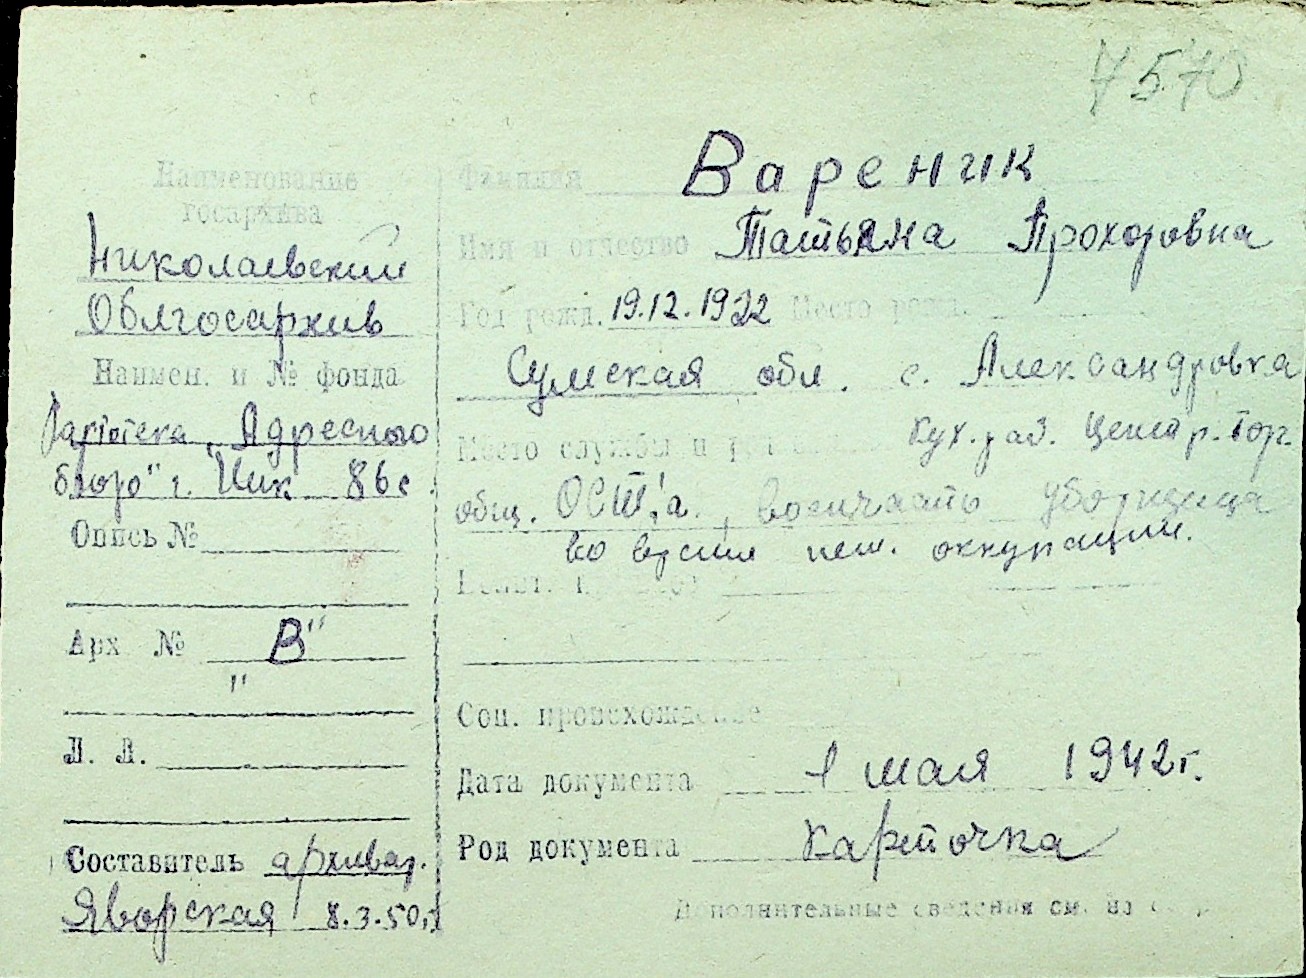 7570
Наименование
госархива
Николаевский
Облгосархив
Наимен. и № фонда
Картотека "Адресного
бюро" г. Ник 86с.
Опись №
Арх № "В"
Л. Л.
Составитель архивар.
Яворская 8.3.50г.
Фамилия Вареник
Имя и отчество Татьяна Прохоровна
Год рожд. 19.12.1922 Место рожд.
Сумская обл. с. Александровка
Место службы и кух. раб. Центр. торг.
общ. ОСТ'а., уборщица
во время нем. оккупации.
Соц. происхождение
Дата документа 1 мая 1942г.
Род документа карточка
Дополнительные сведения см. на